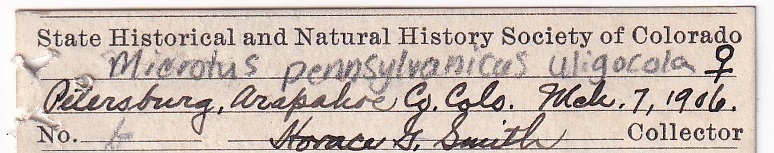 State Historical and Natural History Society of Colorado
Microtus pennsylvanicus uligocola ♀
Petersburg, Arapahoe Co. Colo. Mch. 7, 1906.
No. 6 Horace G. Smith Collector